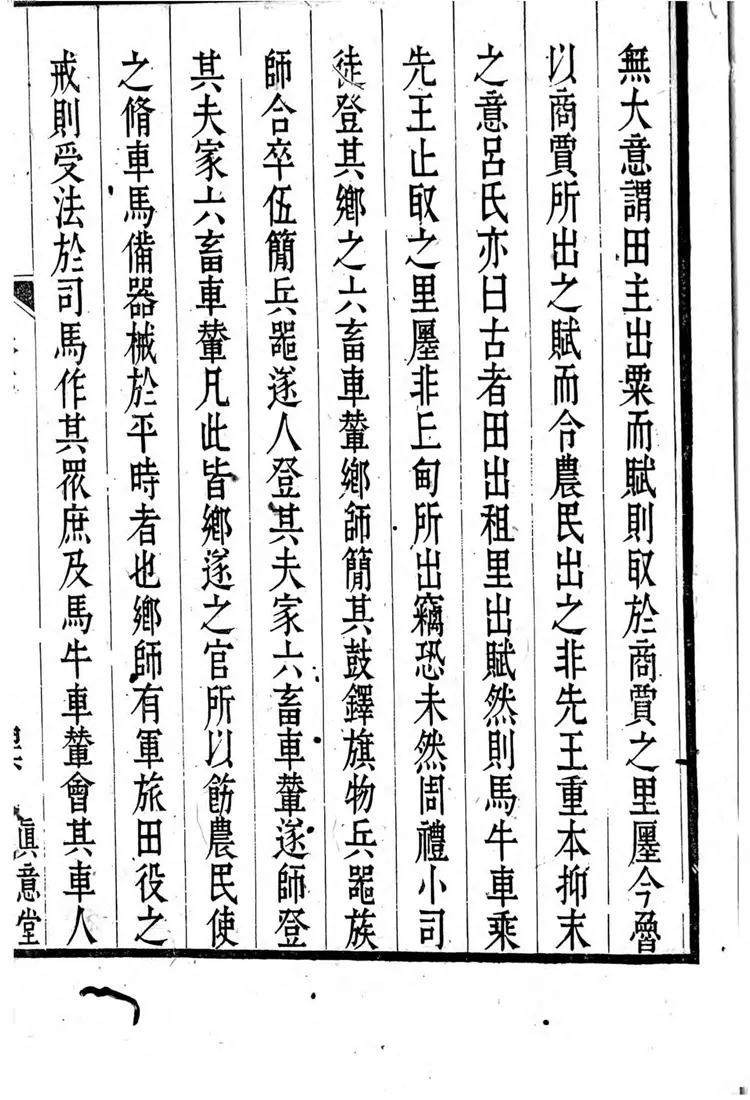 無大意謂田主出粟而賦則取於商賈之里廛今魯
以商賈所出之賦而令農民出之非先王重本抑末
之意呂氏亦曰古者田出租里出賦然則馬牛車乘
先王止取之里廛非丘甸所出竊恐未然周禮小司
徒登其鄉之六畜車輦鄉師簡其鼓鐸旗物兵器族
師合卒伍簡兵器遂人登其夫家六畜車輦遂師登
其夫家六畜車輦凡此皆鄉遂之官所以飭農民使
之脩車馬備器械於平時者也鄉師有軍旅田役之
戒則受法於司馬作其眾庶及馬牛車輦會其車人
真意堂